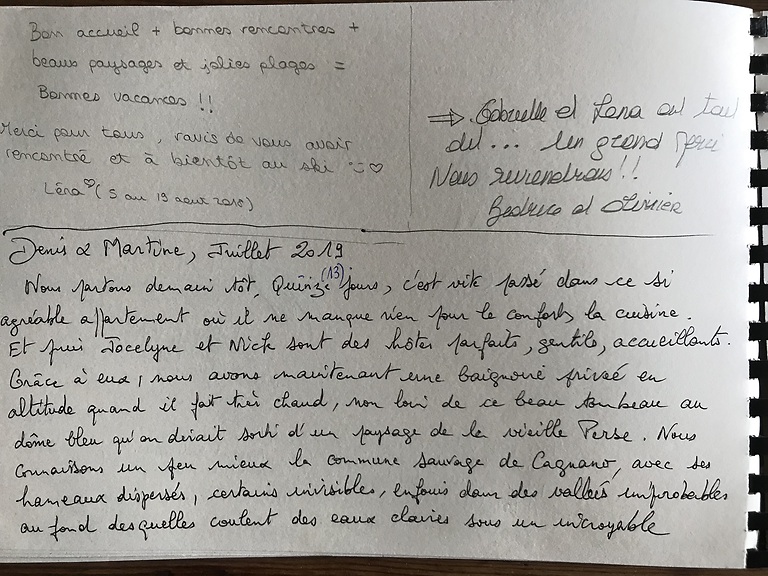 Bon accueil + bonnes rencontres +
beaux paysages et jolies plages =
Bonnes vacances !!
Merci pour tous, ravis de vous avoir
rencontré et à bientôt au ski
Léna (5 au 19 aout 2018)
Gabrielle et Lena ont tout
dit... Un grand Merci
Nous reviendrons!!
et Olivier
Denis & Martine, Juillet 2019
Nous partons demain tôt, Quinze (13) jours, c'est vite passé dans ce si
agréable appartement où il ne manque rien pour le confort, la cuisine.
Et puis Jocelyne et Nick sont des hôtes parfaits, gentils, accueillants.
Grâce à eux, nous avons maintenant une baignoire privée en
altitude quand il fait très chaud, non loin de ce beau tombeau au
dôme bleu qu'on dirait sorti d'un paysage de la vieille Perse. Nous
connaissons un peu mieux la commune sauvage de Cagnano, avec ses
hameaux dispersés, certains invisibles, enfouis dans des vallées improbables
au fond desquelles coulent des eaux claires sous un incroyable